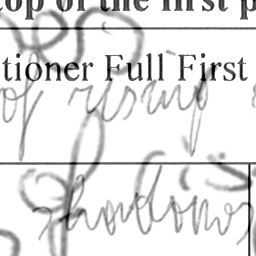 top of the first p
tioner Full First
of rising
shadows